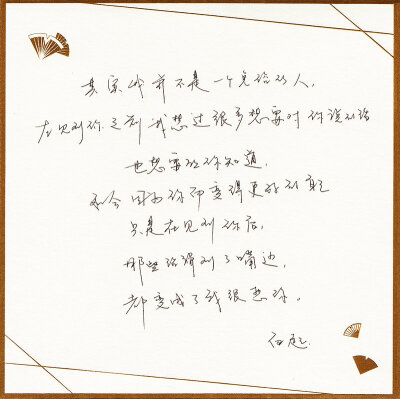 其实我并不是一个完治的人,
在见到你之前我想过很多想要对你说的话
也想要让你知道,
我会因为你而变得更好的自己
只是在见到你后,
那些话语到了嘴边,
都变成了我很想你。